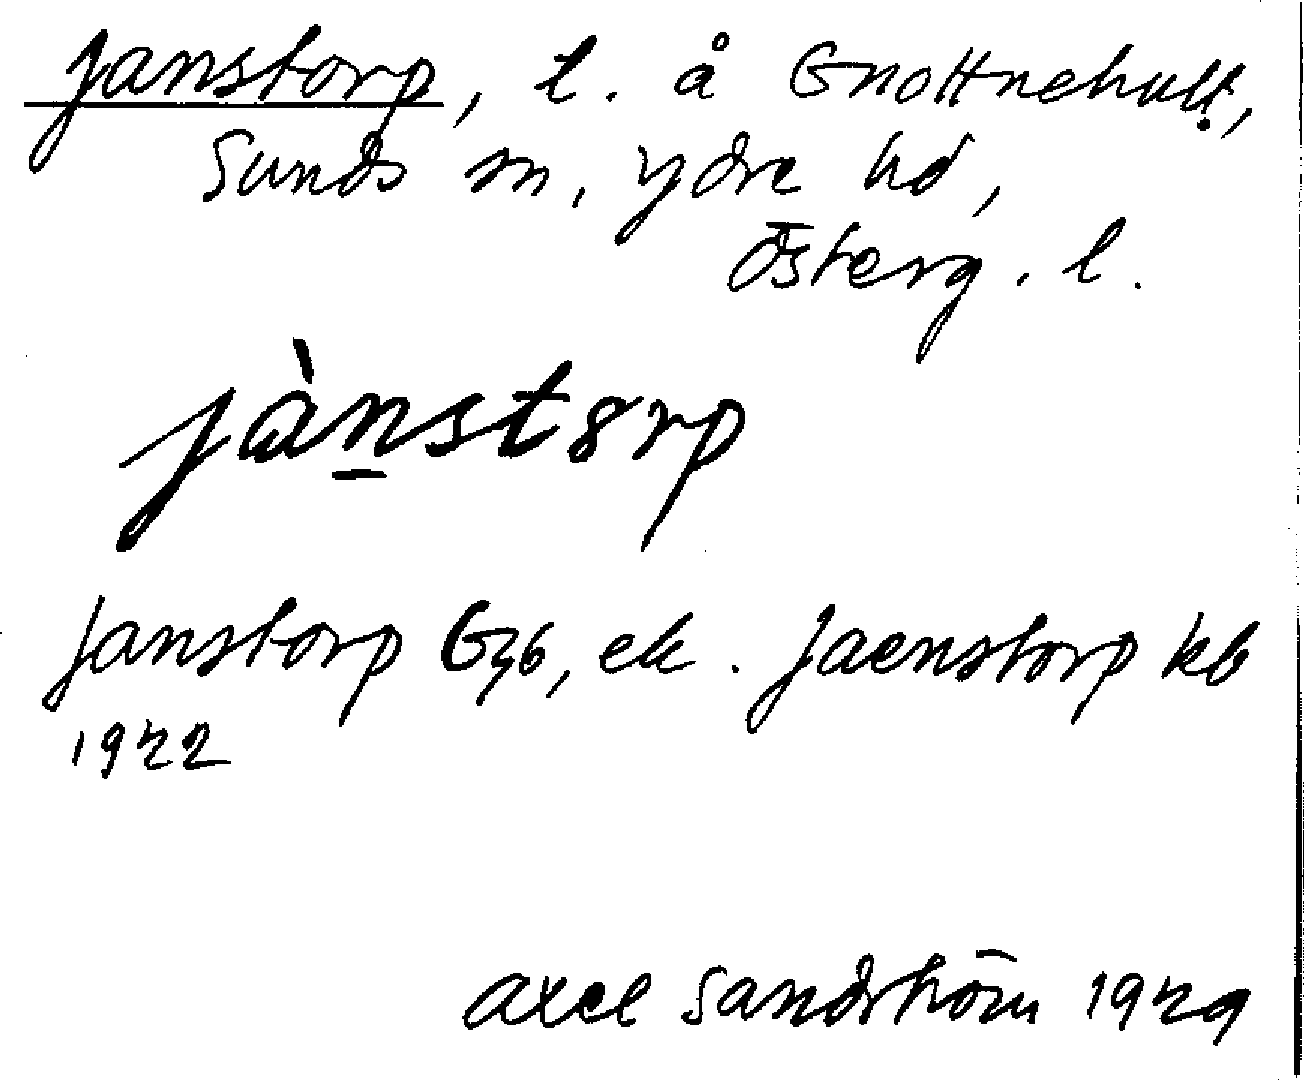 Janstorp, t. å Gnottnehult,
Sunds sn, Ydre hd,
Österg. l.
jànstȣrp
Janstorp G36, ek. Jaenstorp kb
1922
Axel Sandström 1929